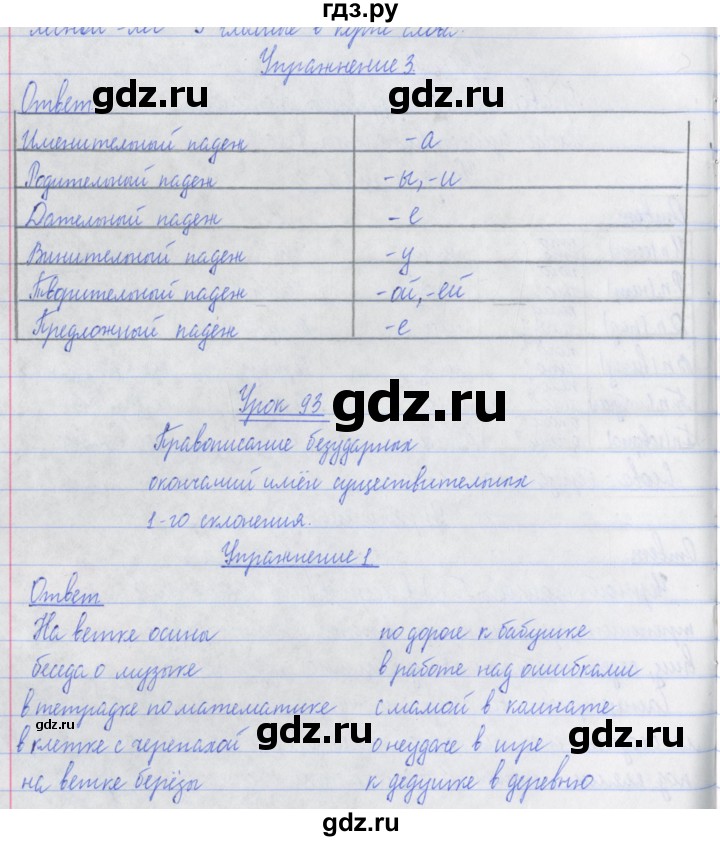 гдз.ру
3 гласные в корне слова.
Упражнение 3.
Ответ
gdz.ru gdz.ru
Именительный падеж -а
Родительный падеж -ы, -и
Дательный падеж -е
Винительный падеж -у
Творительный падеж -ой, -ей
Предложный падеж -е
Урок 93 gdz.ru
Правописание безударных
окончаний имён существительных
1-го склонения.
Упражнение 1
Ответ
На ветке осины по дороге к бабушке
беседа о музыке в работе над ошибками
в тетрадке по математике с мамой в комнате
gdz.ru gdz.ru gdz.ru
в клетке с черепахой о неудаче в игре
на ветке берёзы к дедушке в деревню
gdz.ru